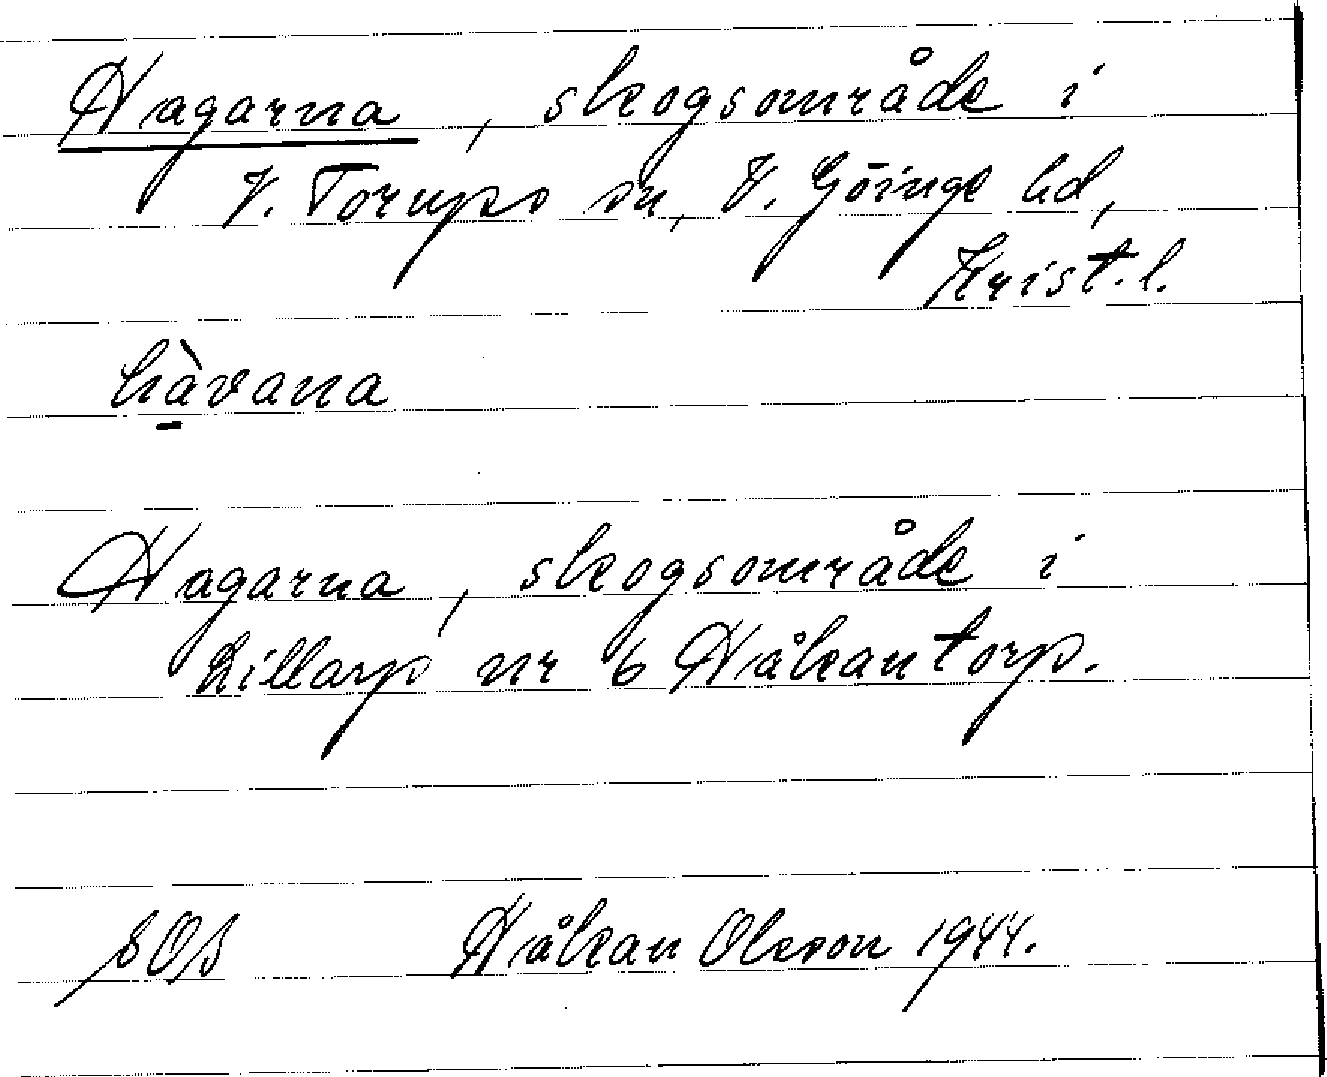 Hagarna, skogsområde i
V. Torups sn, V. Göinge hd,
Krist. l.
hàvana
Hagarna, skogsområde i
Lillarp nr 6 Håkantorp.
SOS Håkan Olsson 1944.